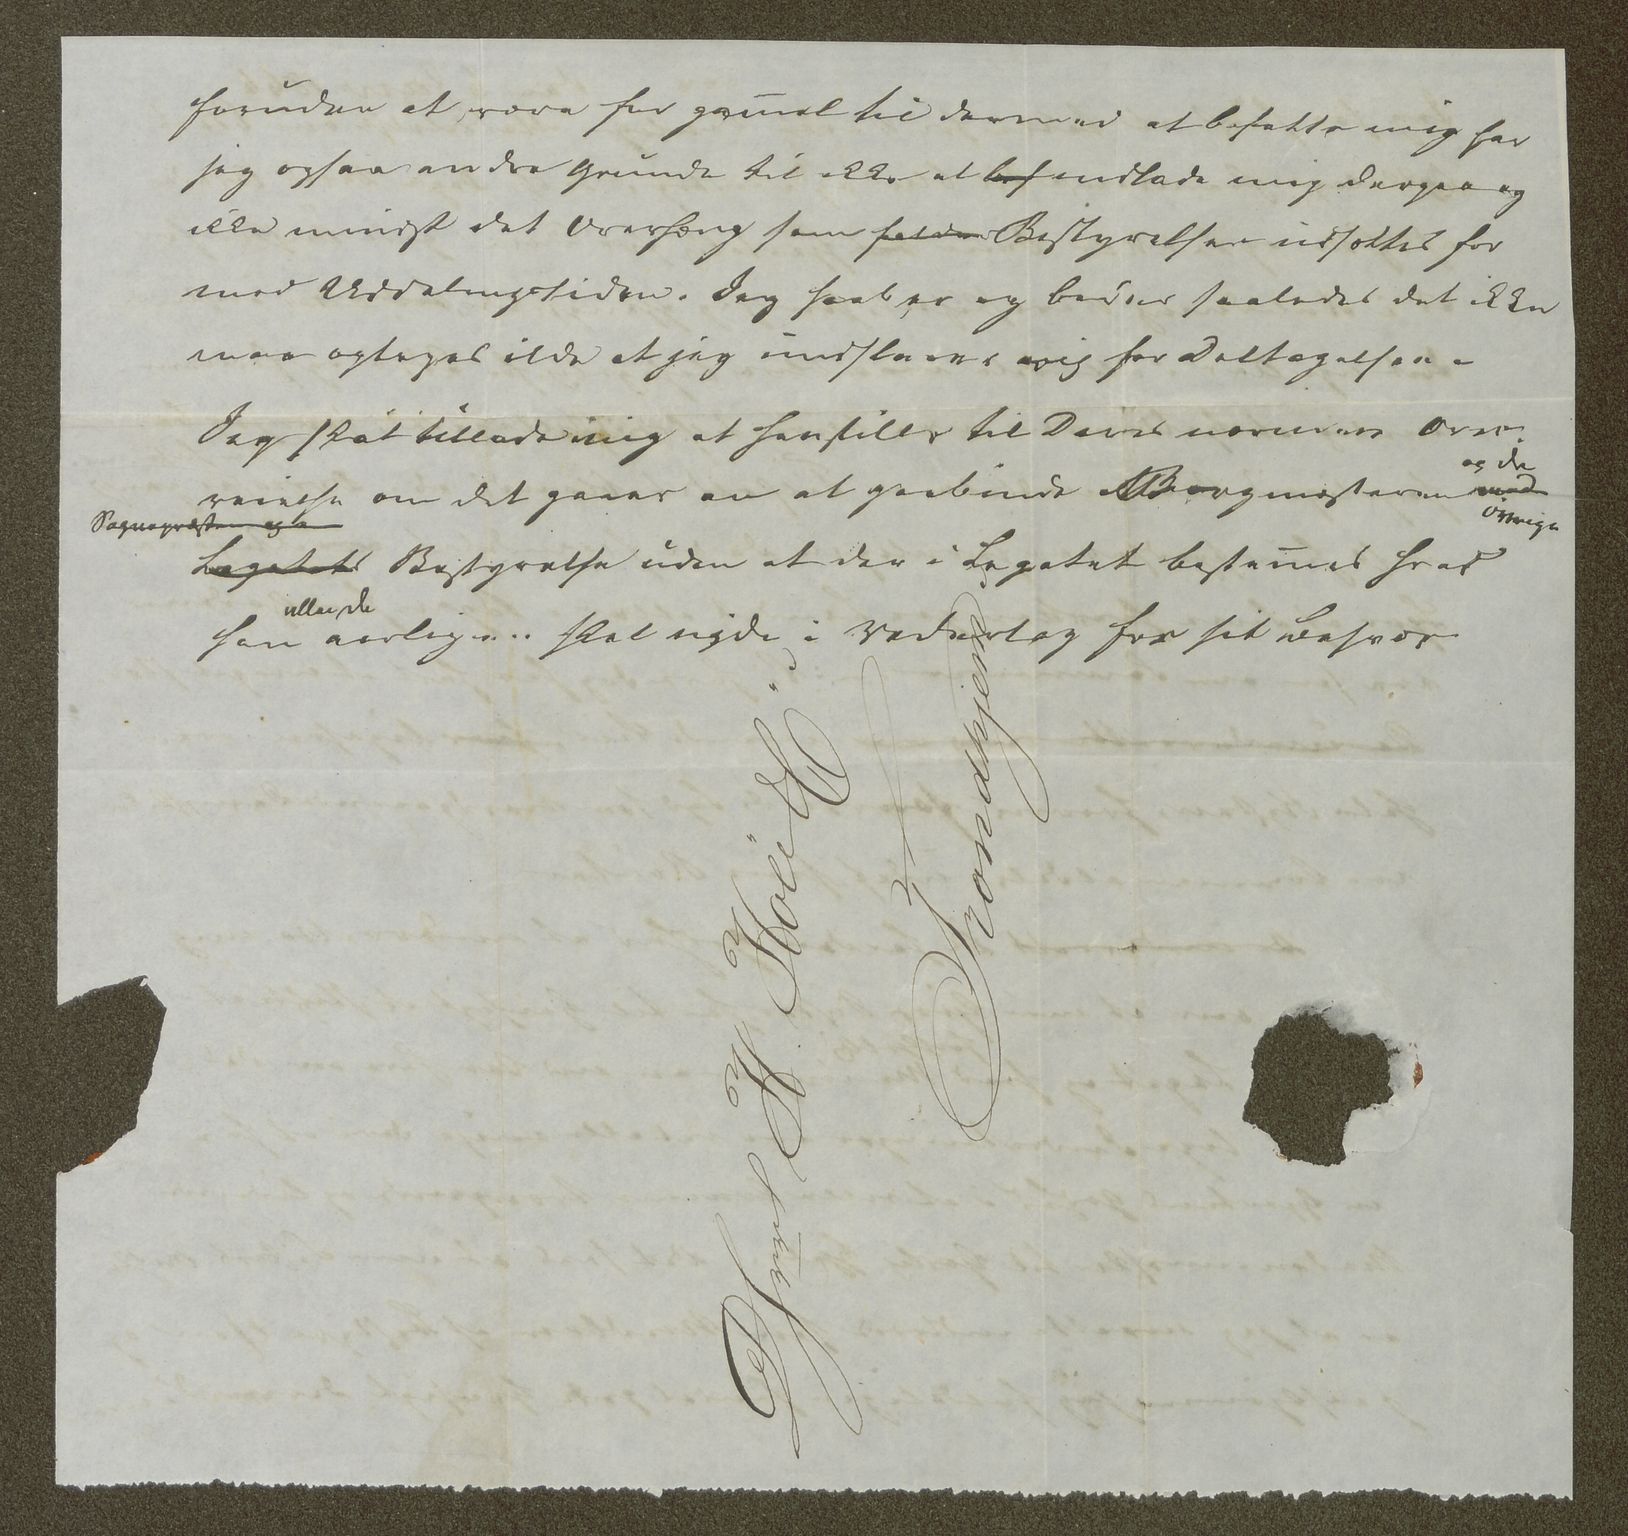 foruden at være for gammel til dermed at befatte mig har
jeg ogsaa andre Grunde til ikke at bef indlade mig derpaa og
ikke mindst det Overhæng som Bestyrelsen udsættes for
ved Uddelingstiden. Jeg haaber og beder saaledes det ikke
maa optages ilde at jeg undslaaer mig for Deltagelsen.
Jeg skal tillade mig at henstille til Deres nærmere Over-
veielse om det gaaer an at paabinde Borgmesteren med
og de
øvrige
Sognepræsten og
Legatets Bestyrelse uden at der i Legatet bestemmes hvad
eller de
han aarligen skal nyde i Vederlag for sit Besvær
Herrer H. Höë &
Trondhjem